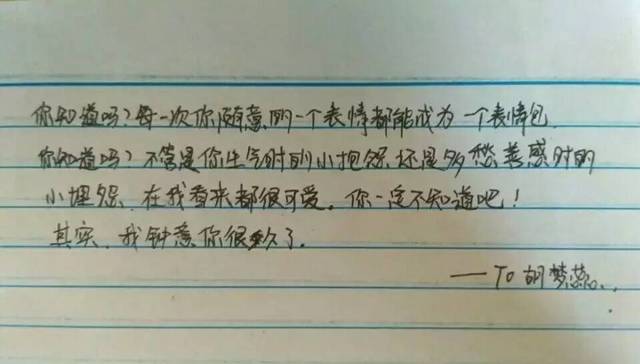 你知道吗？每一次你随意的一个表情都能成为一个表情包
你知道吗？不管是你生气时的小抱怨还是多愁善感时的
小埋怨、在我看来都很可爱。你一定不知道吧！
其实、我钟意你很久了。
——To 胡梦蕊..